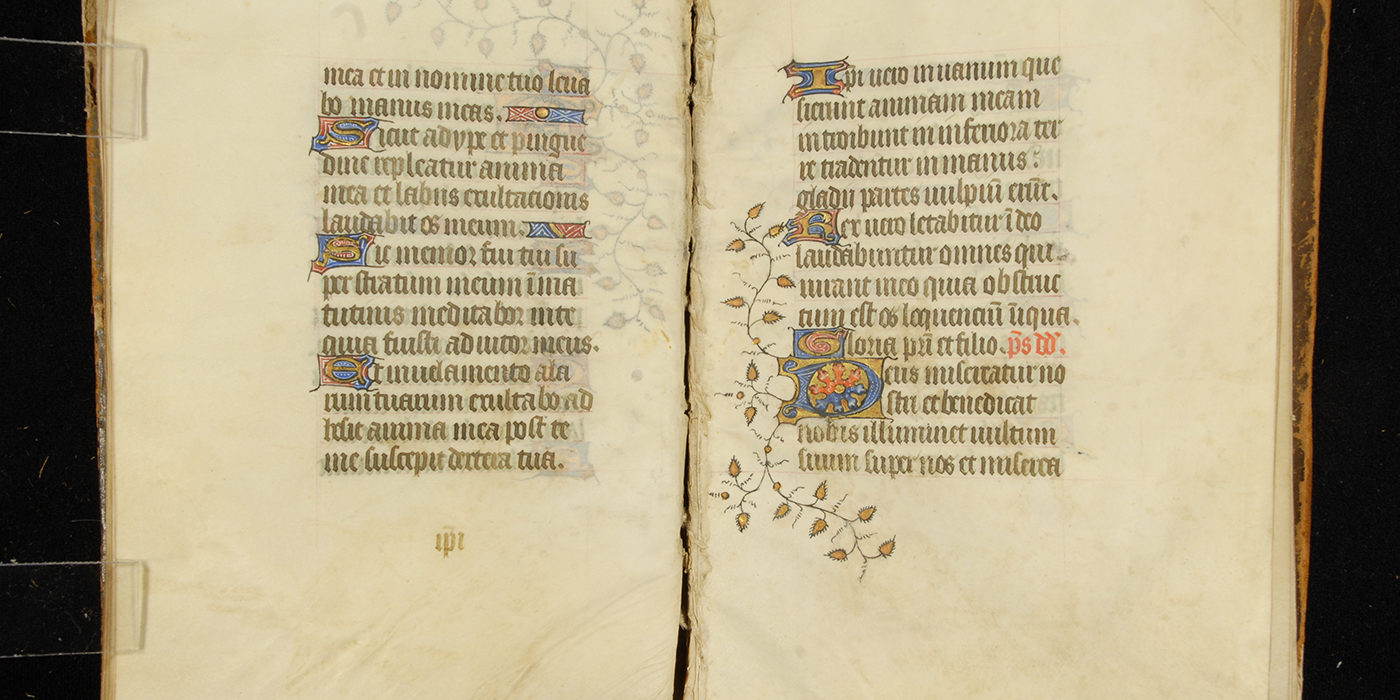 mea et in nomine tuo leua
bo manus meas.
Sicut adype et pingue
dine repleatur anima
mea et labiis exultationis
laudabit os meum.
Sic memor fui tui su
per stratum meum ī ma
tutinis meditabor in te
quia fuisti adiutor meus.
Et in uelamento ala
rum tuarum exultabo ad
hesit anima mea post te
me suscepit dextera tua.
ip̄i
Ipi uero in uanum que
sierunt animam meam
introibunt in inferiora ter
re tradentur in manus
gladii partes uulpiū erūt.
Rex uero letabitur ī deo
laudabuntur omnes qui
iurant in eo quia obstruc
tum est os loquenciū īiqua.
Gloria pr̄i et filio. p̄s dd̄.
Deus misereatur no
stri et benedicat
nobis illuminet uultum
suum super nos et miserea